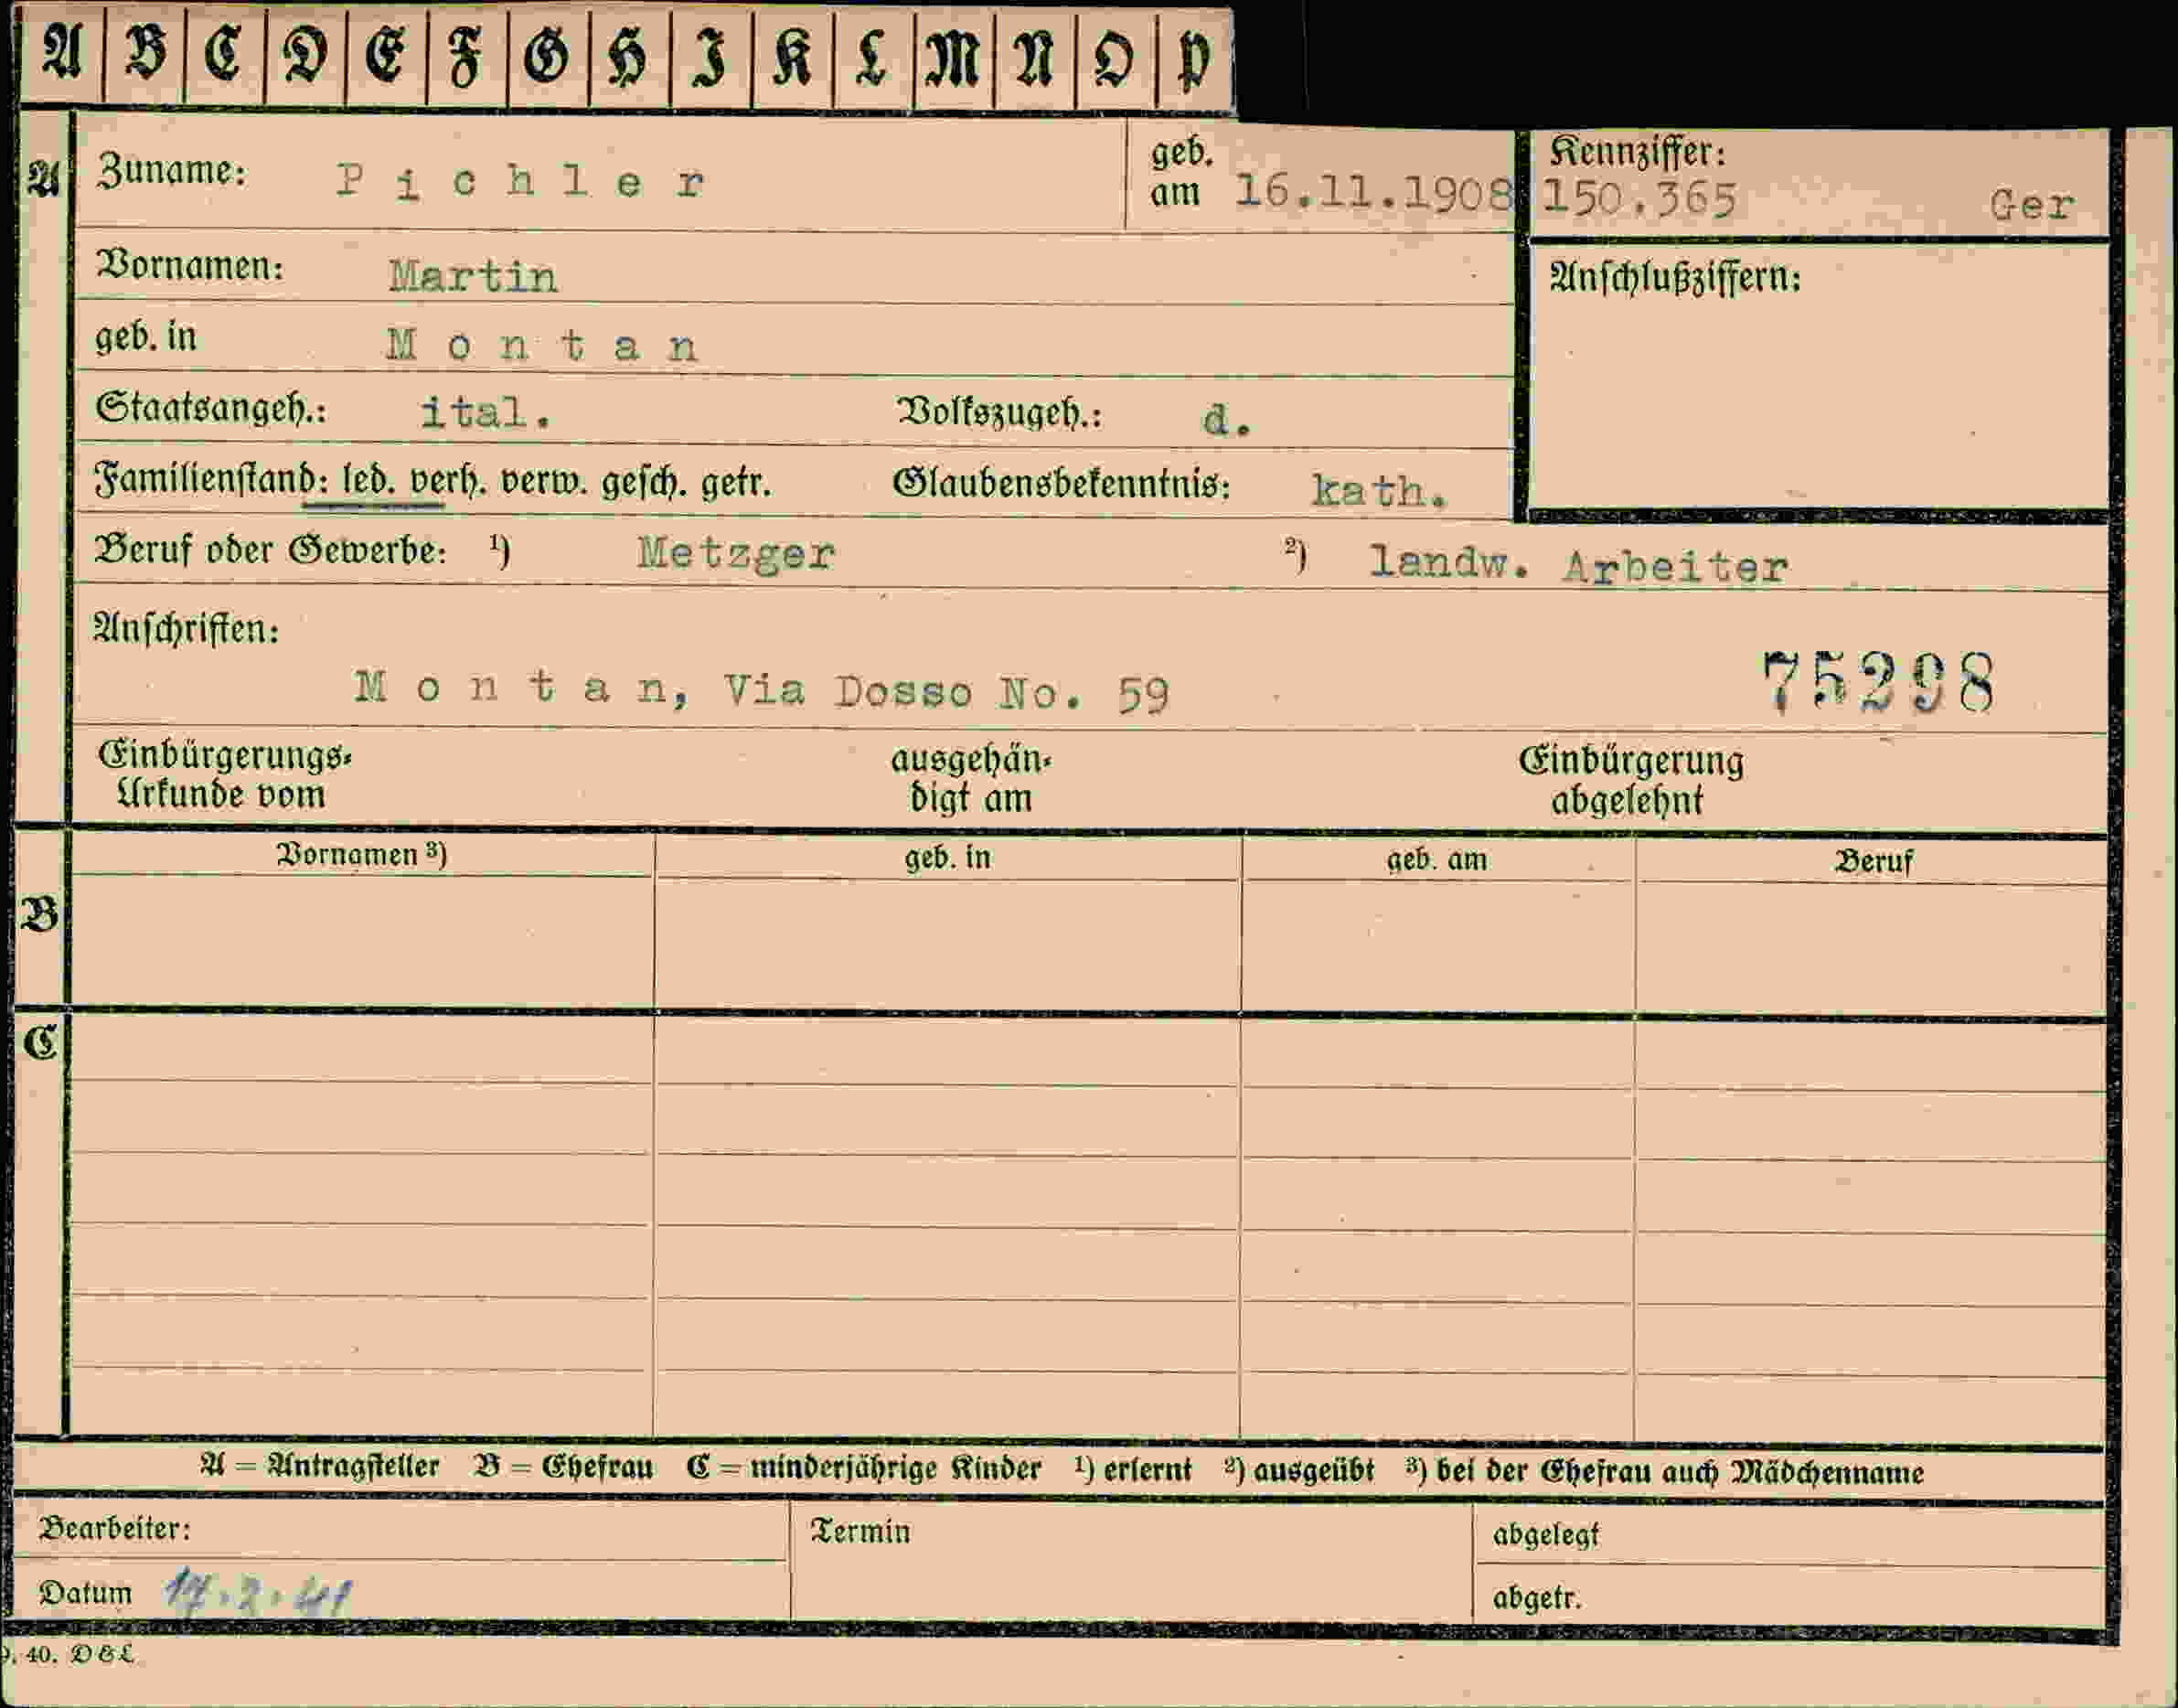 A B C D E F G H I K L M N O P
A Zuname: Pichler geb. am 16.11.1908 Kennziffer: 150.365 Ger
Vornamen: Martin Anschlußziffern:
geb. in Montan
Staatsangeh.: ital. Volkszugeh.: d.
Familienstand: led. verh. verw. gesch. getr. Glaubensbekenntnis: kath.
Beruf oder Gewerbe: ¹) Metzger ²) landw. Arbeiter
Anschriften:
Montan, Via Dosso No. 59 75298
Einbürgerungs- ausgehän- Einbürgerung
Urkunde vom digt am abgelehnt
Vornamen ³) geb. in geb. am Beruf
B
C
A = Antragsteller B = Ehefrau C = minderjährige Kinder ¹) erlernt ²) ausgeübt ³) bei der Ehefrau auch Mädchenname
Bearbeiter: Termin abgelegt
Datum 17.2.41 abgetr.
40. D&L